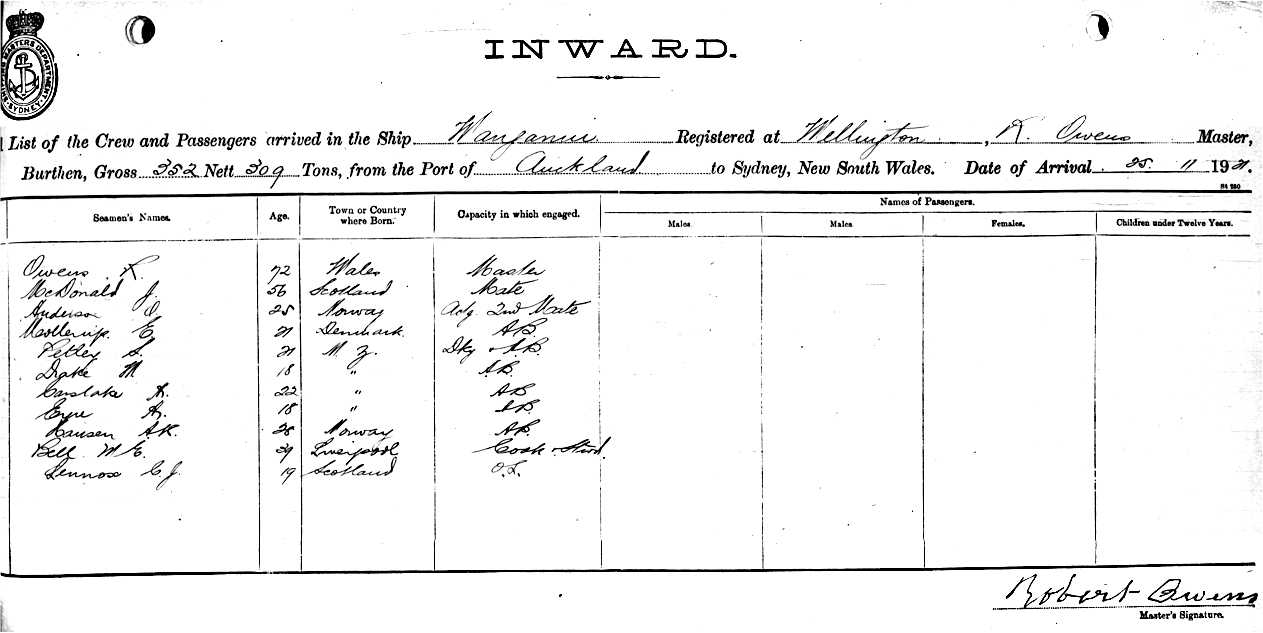 SHIPPING MASTERS DEPARTMENT SYDNEY
INWARD.
List of the Crew and Passengers arrived in the Ship Wanganui Registered at Wellington, R. Owens Master,
Burthen, Gross 352 Nett 309 Tons, from the Port of Auckland to Sydney, New South Wales. Date of Arrival 25. 11 1921.
Names of Passengers.
Seamen's Names. Age. Town or Country where Born. Capacity in which engaged. Males Males Females. Children under Twelve Years.
Owens R. 72 Wales Master
McDonald J. 56 Scotland Mate
Anderson O 25 Norway Actg 2nd Mate
E 21 Denmark AB
Petley S. 21 N. Z. Dky & AB.
Drake M 18 " AB.
Carslake A. 22 " AB
Eyre A. 18 " AB.
Hansen A.K. 28 Norway AB.
Bell M E. 39 Liverpool Cook & Stwd.
Lennox C J. 19 Scotland O.S.
Robert Owens
Master's Signature.